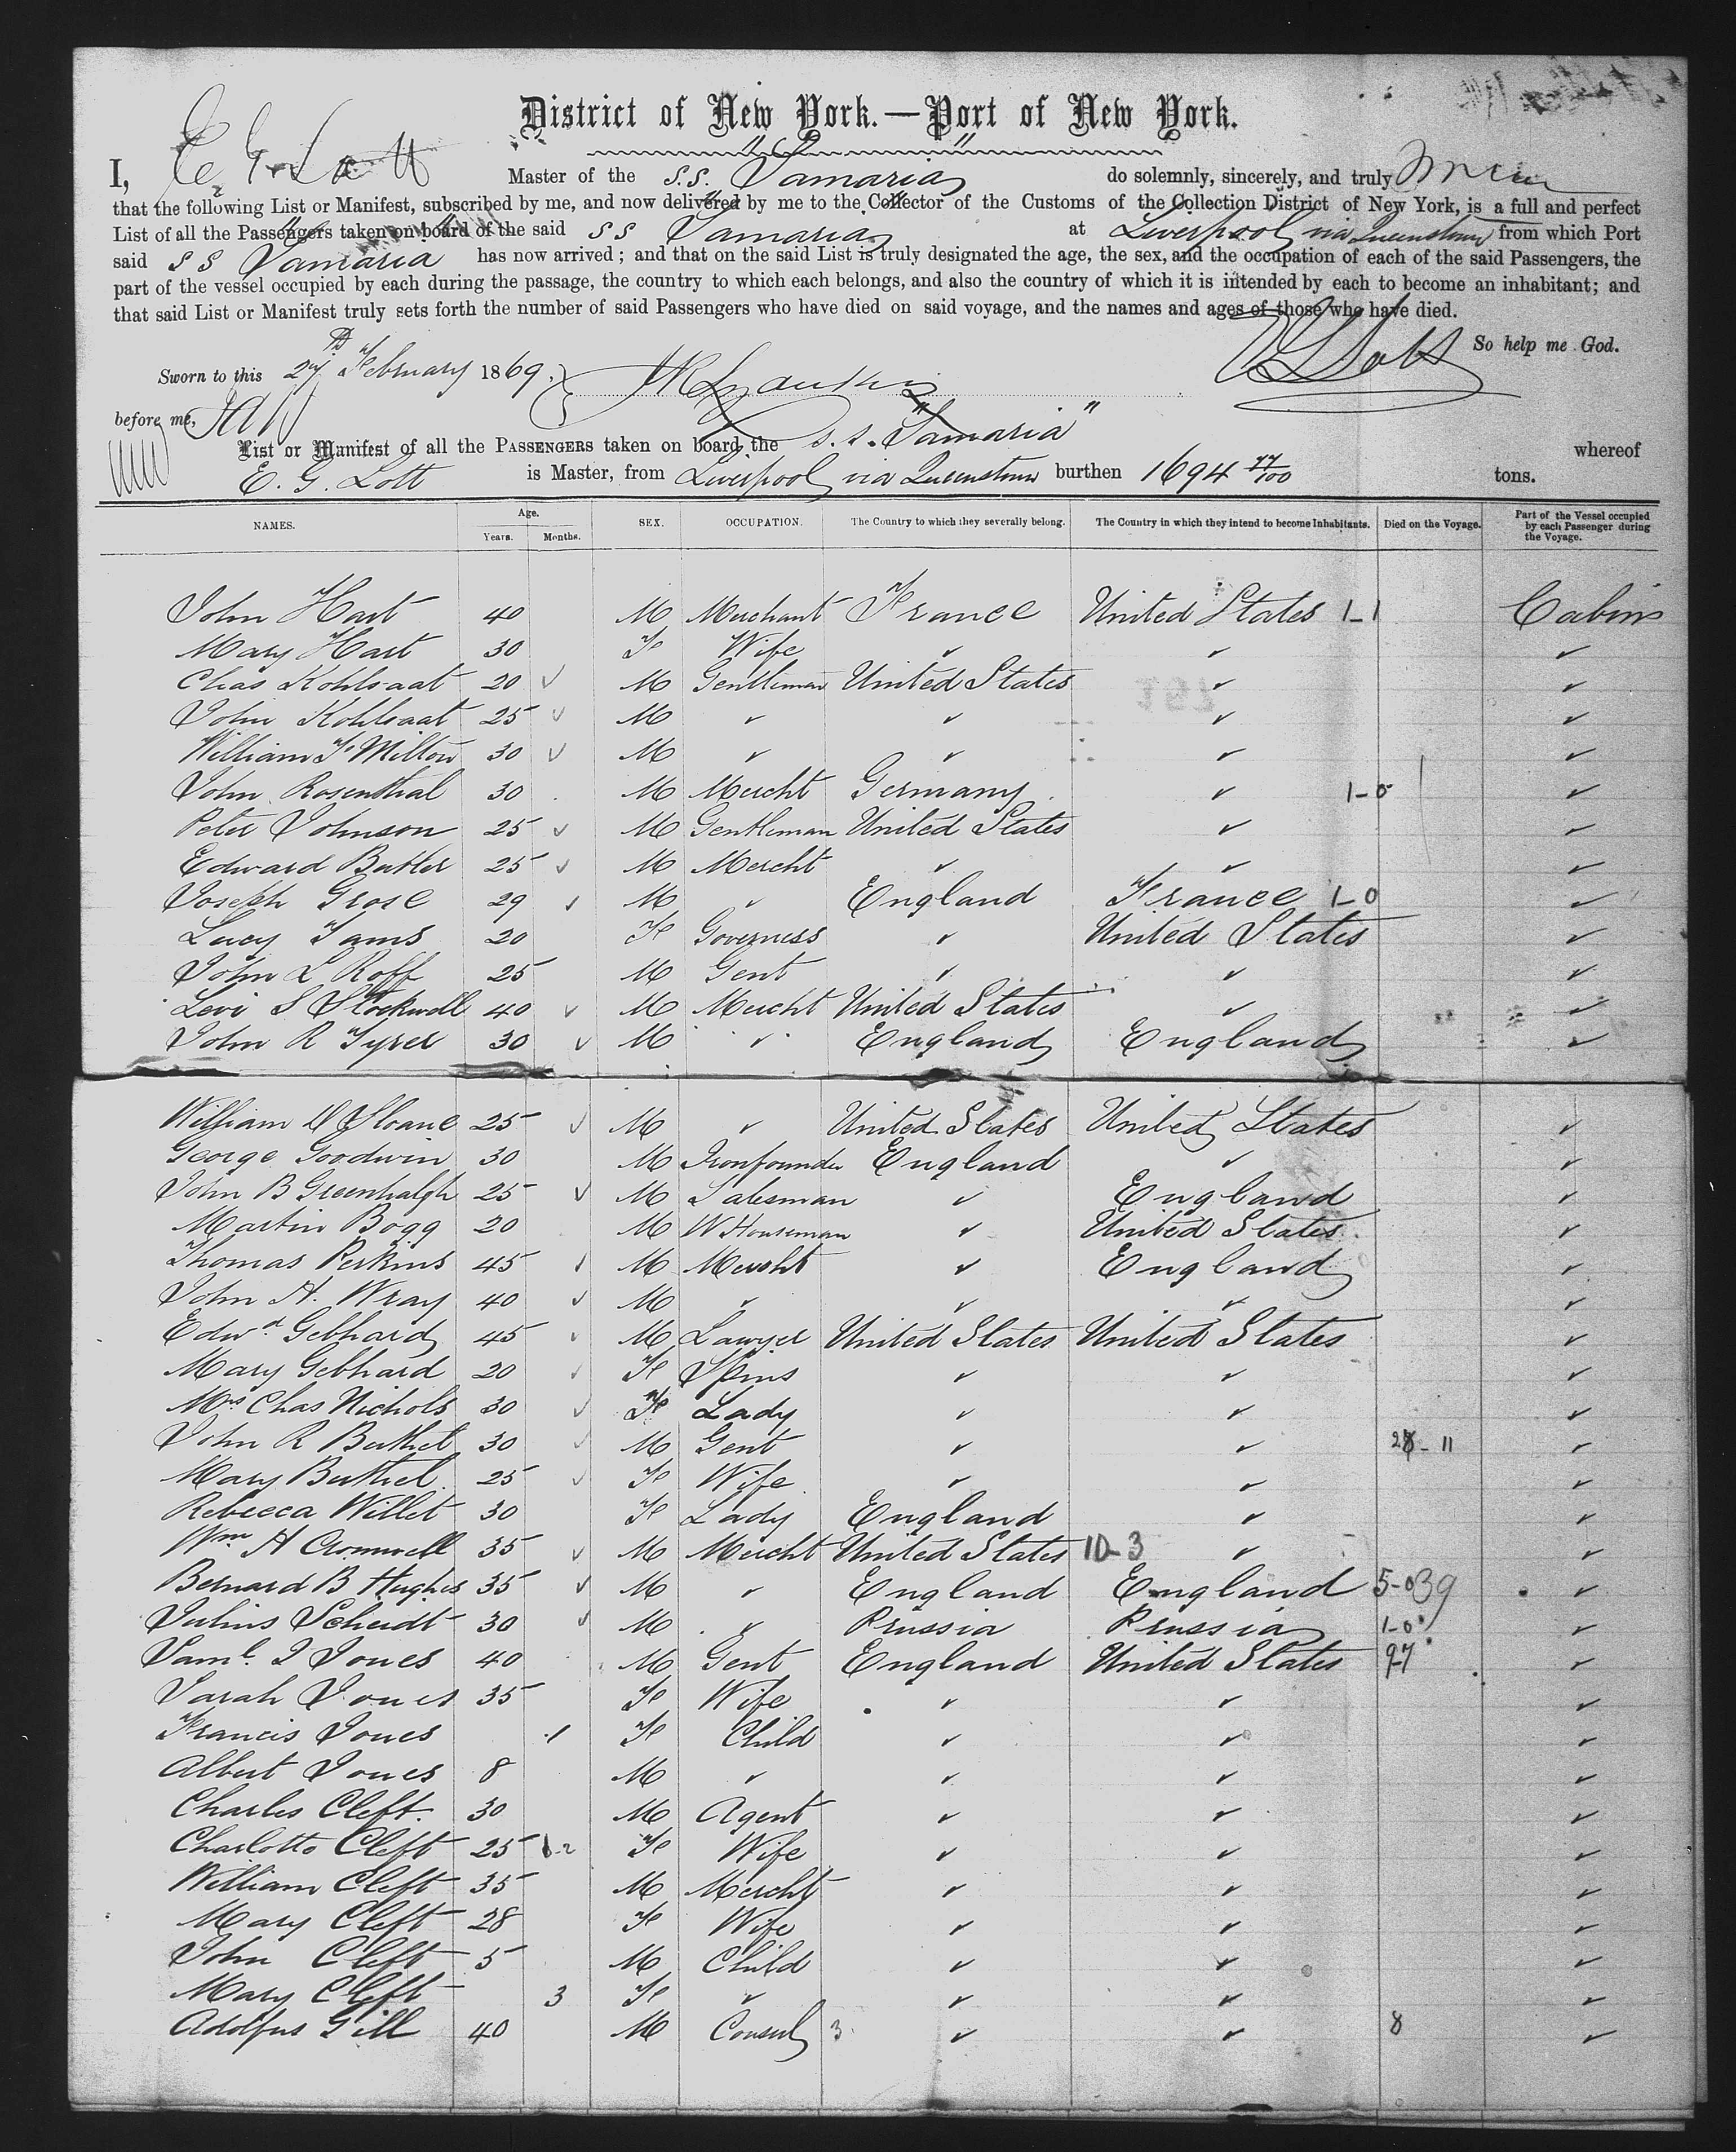 District of New York.—Port of New York.
I, E. G. Lott Master of the S.S. "Samaria" do solemnly, sincerely, and truly swear
that the following List or Manifest, subscribed by me, and now delivered by me to the Collector of the Customs of the Collection District of New York, is a full and perfect
List of all the Passengers taken on board of the said S S "Samaria" at Liverpool via Queenstown from which Port
said S S "Samaria" has now arrived; and that on the said List is truly designated the age, the sex, and the occupation of each of the said Passengers, the
part of the vessel occupied by each during the passage, the country to which each belongs, and also the country of which it is intended by each to become an inhabitant; and
that said List or Manifest truly sets forth the number of said Passengers who have died on said voyage, and the names and ages of those who have died.
So help me God.
E G Lott
Sworn to this 27th February 1869.
before me,
List or Manifest of all the PASSENGERS taken on board the s.s. "Samaria" whereof
E. G. Lott is Master, from Liverpool via Queenstown burthen 1694 77/100 tons.
NAMES. Age. Years. Months. SEX. OCCUPATION. The Country to which they severally belong. The Country in which they intend to become Inhabitants. Died on the Voyage. Part of the Vessel occupied by each Passenger during the Voyage.
John Hart 40 M Merchant France United States 1-1 Cabin
Mary Hart 30 F Wife ✓ ✓ ✓
Chas Kohlsaat 20 ✓ M Gentleman United States ✓ ✓
John Kohlsaat 25 ✓ M ✓ ✓ ✓ ✓
William F Milton 30 ✓ M ✓ ✓ ✓ ✓
John Rosenthal 30 M Mercht Germany ✓ 1-0 ✓
Peter Johnson 25 ✓ M Gentleman United States ✓ ✓
Edward Butler 25 ✓ M Mercht ✓ ✓ ✓
Joseph Grose 29 ✓ M ✓ England France 1-0 ✓
Lucy Tams 20 F Governess ✓ United States ✓
John L Roff 25 M Gent ✓ ✓ ✓
Levi S Stockwell 40 ✓ M Mercht United States ✓ ✓
John R Tyrer 30 ✓ M ✓ England England ✓
William D Sloane 25 ✓ M ✓ United States United States ✓
George Goodwin 30 M Ironfounder England ✓ ✓
John B Greenhalgh 25 ✓ M Salesman ✓ England ✓
Martin Bogg 20 M W Houseman ✓ United States ✓
Thomas Perkins 45 ✓ M Mercht ✓ England ✓
John H. Wray 40 ✓ M ✓ ✓ ✓ ✓
Edwd Gebhard 45 ✓ M Lawyer United States United States ✓
Mary Gebhard 20 ✓ F Spins ✓ ✓ ✓
Mrs Chas Nichols 30 ✓ F Lady ✓ ✓ ✓
John R Buthel 30 ✓ M Gent ✓ ✓ 28-11 ✓
Mary Buthel 25 ✓ F Wife ✓ ✓ ✓
Rebecca Willet 30 F Lady England ✓ ✓
Wm H Cromwell 35 ✓ M Mercht United States 10-3 ✓ ✓
Bernard B Hughes 35 ✓ M ✓ England England 5-0 39 ✓
Julius Scheidt 30 ✓ M ✓ Prussia Prussia 1-0 ✓
Saml J Jones 40 M Gent England United States 9-7 ✓
Sarah Jones 35 F Wife ✓ ✓ ✓
Francis Jones 1 F Child ✓ ✓ ✓
Albert Jones 8 M ✓ ✓ ✓ ✓
Charles Cleft. 30 M Agent ✓ ✓ ✓
Charlotte Cleft 25 F Wife ✓ ✓ ✓
William Cleft 35 M Mercht ✓ ✓ ✓
Mary Cleft 28 F Wife ✓ ✓ ✓
John Cleft 5 M Child ✓ ✓ ✓
Mary Cleft 3 F ✓ ✓ ✓ ✓
Adolfus Gill 40 M Consul 3 ✓ ✓ 8 ✓